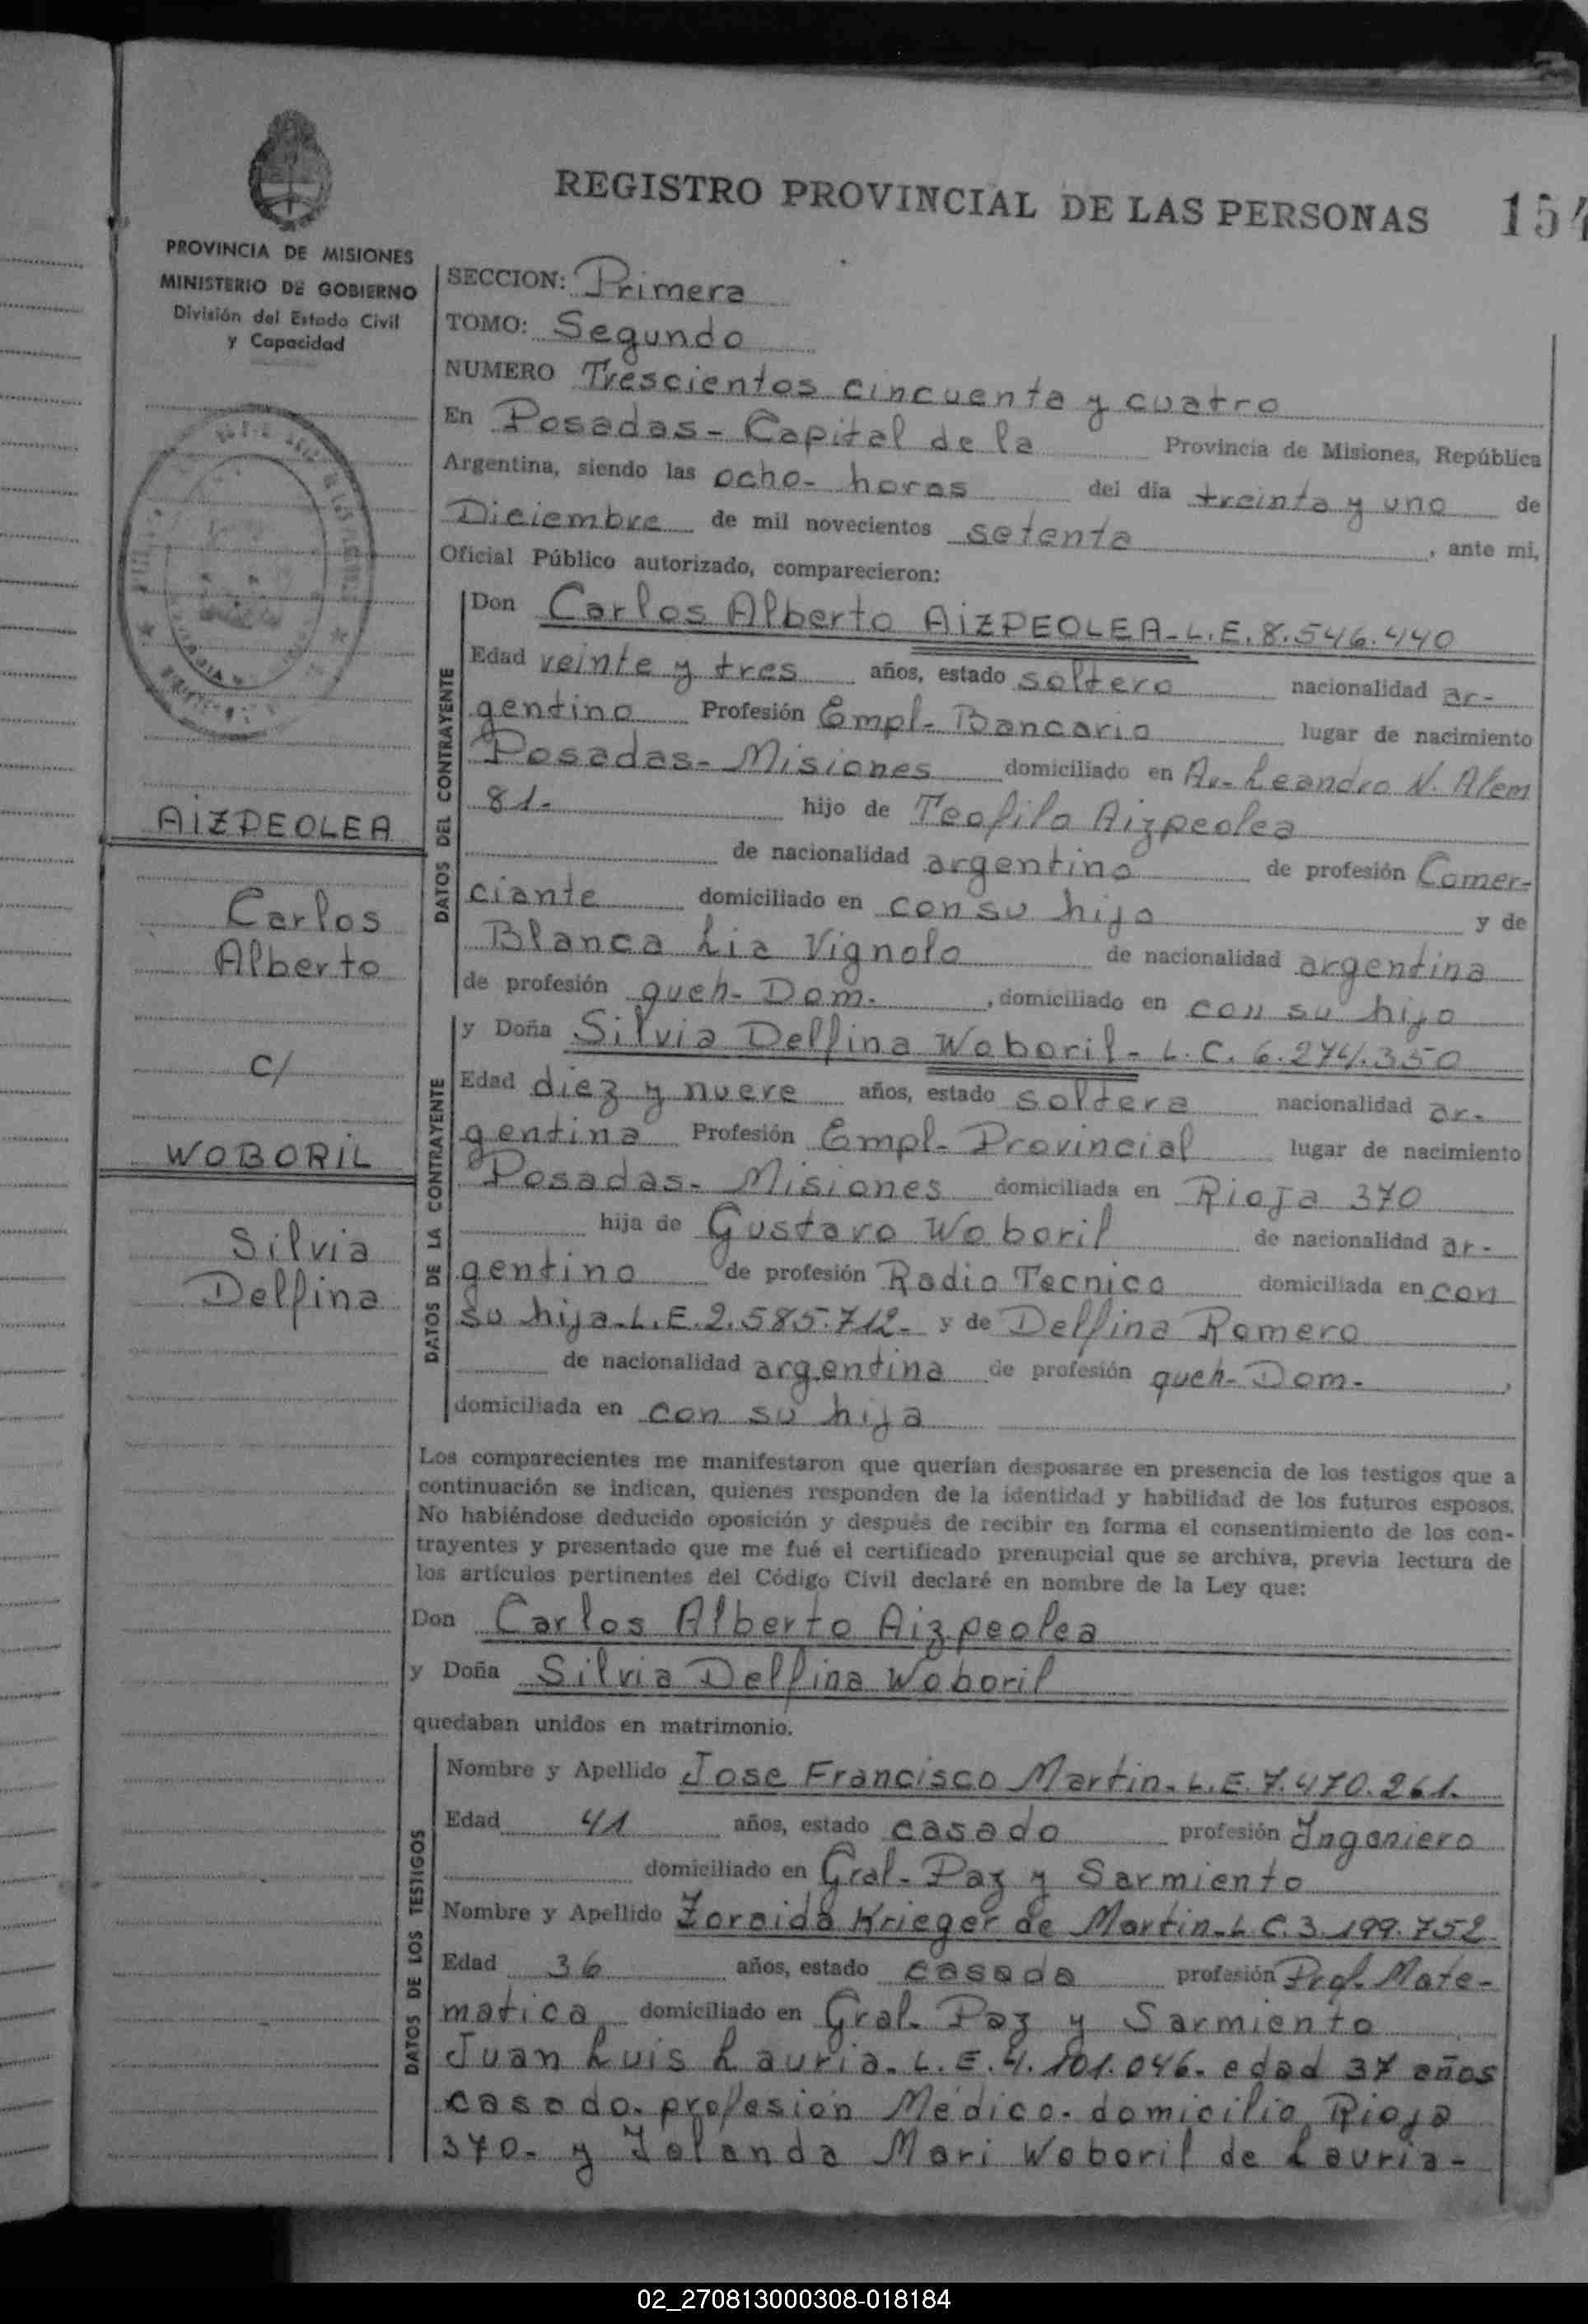 REGISTRO PROVINCIAL DE LAS PERSONAS 154
PROVINCIA DE MISIONES
MINISTERIO DE GOBIERNO
División del Estado Civil
y Capacidad
AIZPEOLEA
Carlos
Alberto
c/
WOBORIL
Silvia
Delfina
SECCION: Primera
TOMO: Segundo
NUMERO Trescientos cincuenta y cuatro
En Posadas - Capital de la Provincia de Misiones, República
Argentina, siendo las ocho - horas del día treinta y uno de
Diciembre de mil novecientos setenta, ante mi,
Oficial Público autorizado, comparecieron:
DATOS DEL CONTRAYENTE
Don Carlos Alberto AIZPEOLEA - L.E. 8.546.440
Edad veinte y tres años, estado soltero nacionalidad ar-
gentino Profesión Empl - Bancario lugar de nacimiento
Posadas - Misiones domiciliado en Av - Leandro N. Alem
81 - hijo de Teofilo Aizpeolea
de nacionalidad argentino de profesión Comer-
ciante domiciliado en con su hijo y de
Blanca Lia Vignolo de nacionalidad argentina
de profesión queh - Dom -, domiciliado en con su hijo
DATOS DE LA CONTRAYENTE
y Doña Silvia Delfina Woboril - L.C. 6.274.350
Edad diez y nueve años, estado soltera nacionalidad ar-
gentina Profesión Empl - Provincial lugar de nacimiento
Posadas - Misiones domiciliada en Rioja 370
hija de Gustavo Woboril de nacionalidad ar-
gentino de profesión Radio Tecnico domiciliada en con
su hija - L.E. 2.585.712 - y de Delfina Romero
de nacionalidad argentina de profesión queh - Dom -,
domiciliada en con su hija
Los comparecientes me manifestaron que querían desposarse en presencia de los testigos que a
continuación se indican, quienes responden de la identidad y habilidad de los futuros esposos.
No habiéndose deducido oposición y después de recibir en forma el consentimiento de los con-
trayentes y presentado que me fué el certificado prenupcial que se archiva, previa lectura de
los artículos pertinentes del Código Civil declaré en nombre de la Ley que:
Don Carlos Alberto Aizpeolea
y Doña Silvia Delfina Woboril
quedaban unidos en matrimonio.
DATOS DE LOS TESTIGOS
Nombre y Apellido Jose Francisco Martin - L.E. 7.470.261.
Edad 41 años, estado casado profesión Ingeniero
domiciliado en Gral - Paz y Sarmiento
Nombre y Apellido Zoraida Krieger de Martin - L C. 3.199.752
Edad 36 años, estado casada profesión Prof. Mate-
matica domiciliado en Gral - Paz y Sarmiento
Juan Luis Lauria - L.E. 4.101.046 - edad 37 años
casado - profesión Médico - domicilio Rioja
370 - y Jolanda Mari Woboril de Lauria -
02_270813000308-018184